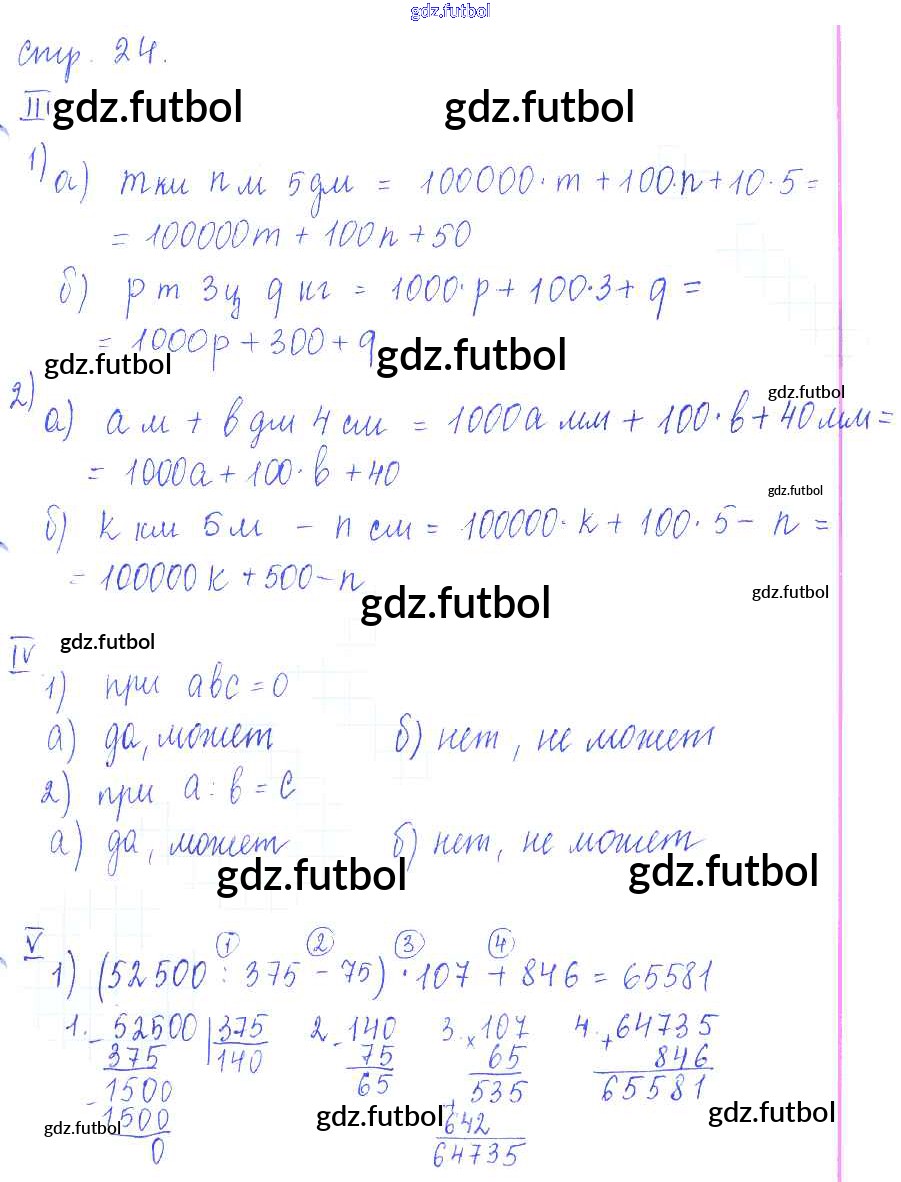 gdz.futbol
стр. 24.
III gdz.futbol gdz.futbol
1) а) m км n м 5 дм = 100000·m + 100·n + 10·5 =
= 100000m + 100n + 50
б) p т 3 ц q кг = 1000·p + 100·3 + q =
= 1000p + 300 + q
gdz.futbol gdz.futbol
gdz.futbol
2) а) a м + b дм 4 см = 1000a мм + 100·b + 40 мм =
= 1000a + 100·b + 40
gdz.futbol
б) k км 5 м - n см = 100000·k + 100·5 - n =
= 100000k + 500 - n
gdz.futbol gdz.futbol
IV gdz.futbol
1) при abc = 0
а) да, может б) нет, не может
2) при a : b = c
а) да, может б) нет, не может
gdz.futbol gdz.futbol
V 1 2 3 4
1) (52500 : 375 - 75) · 107 + 846 = 65581
1. - 52500 | 375 2. - 140 3. × 107 4. + 64735
375 140 75 65 846
- 1500 65 + 535 65581
1500 642
gdz.futbol gdz.futbol gdz.futbol
0 64735